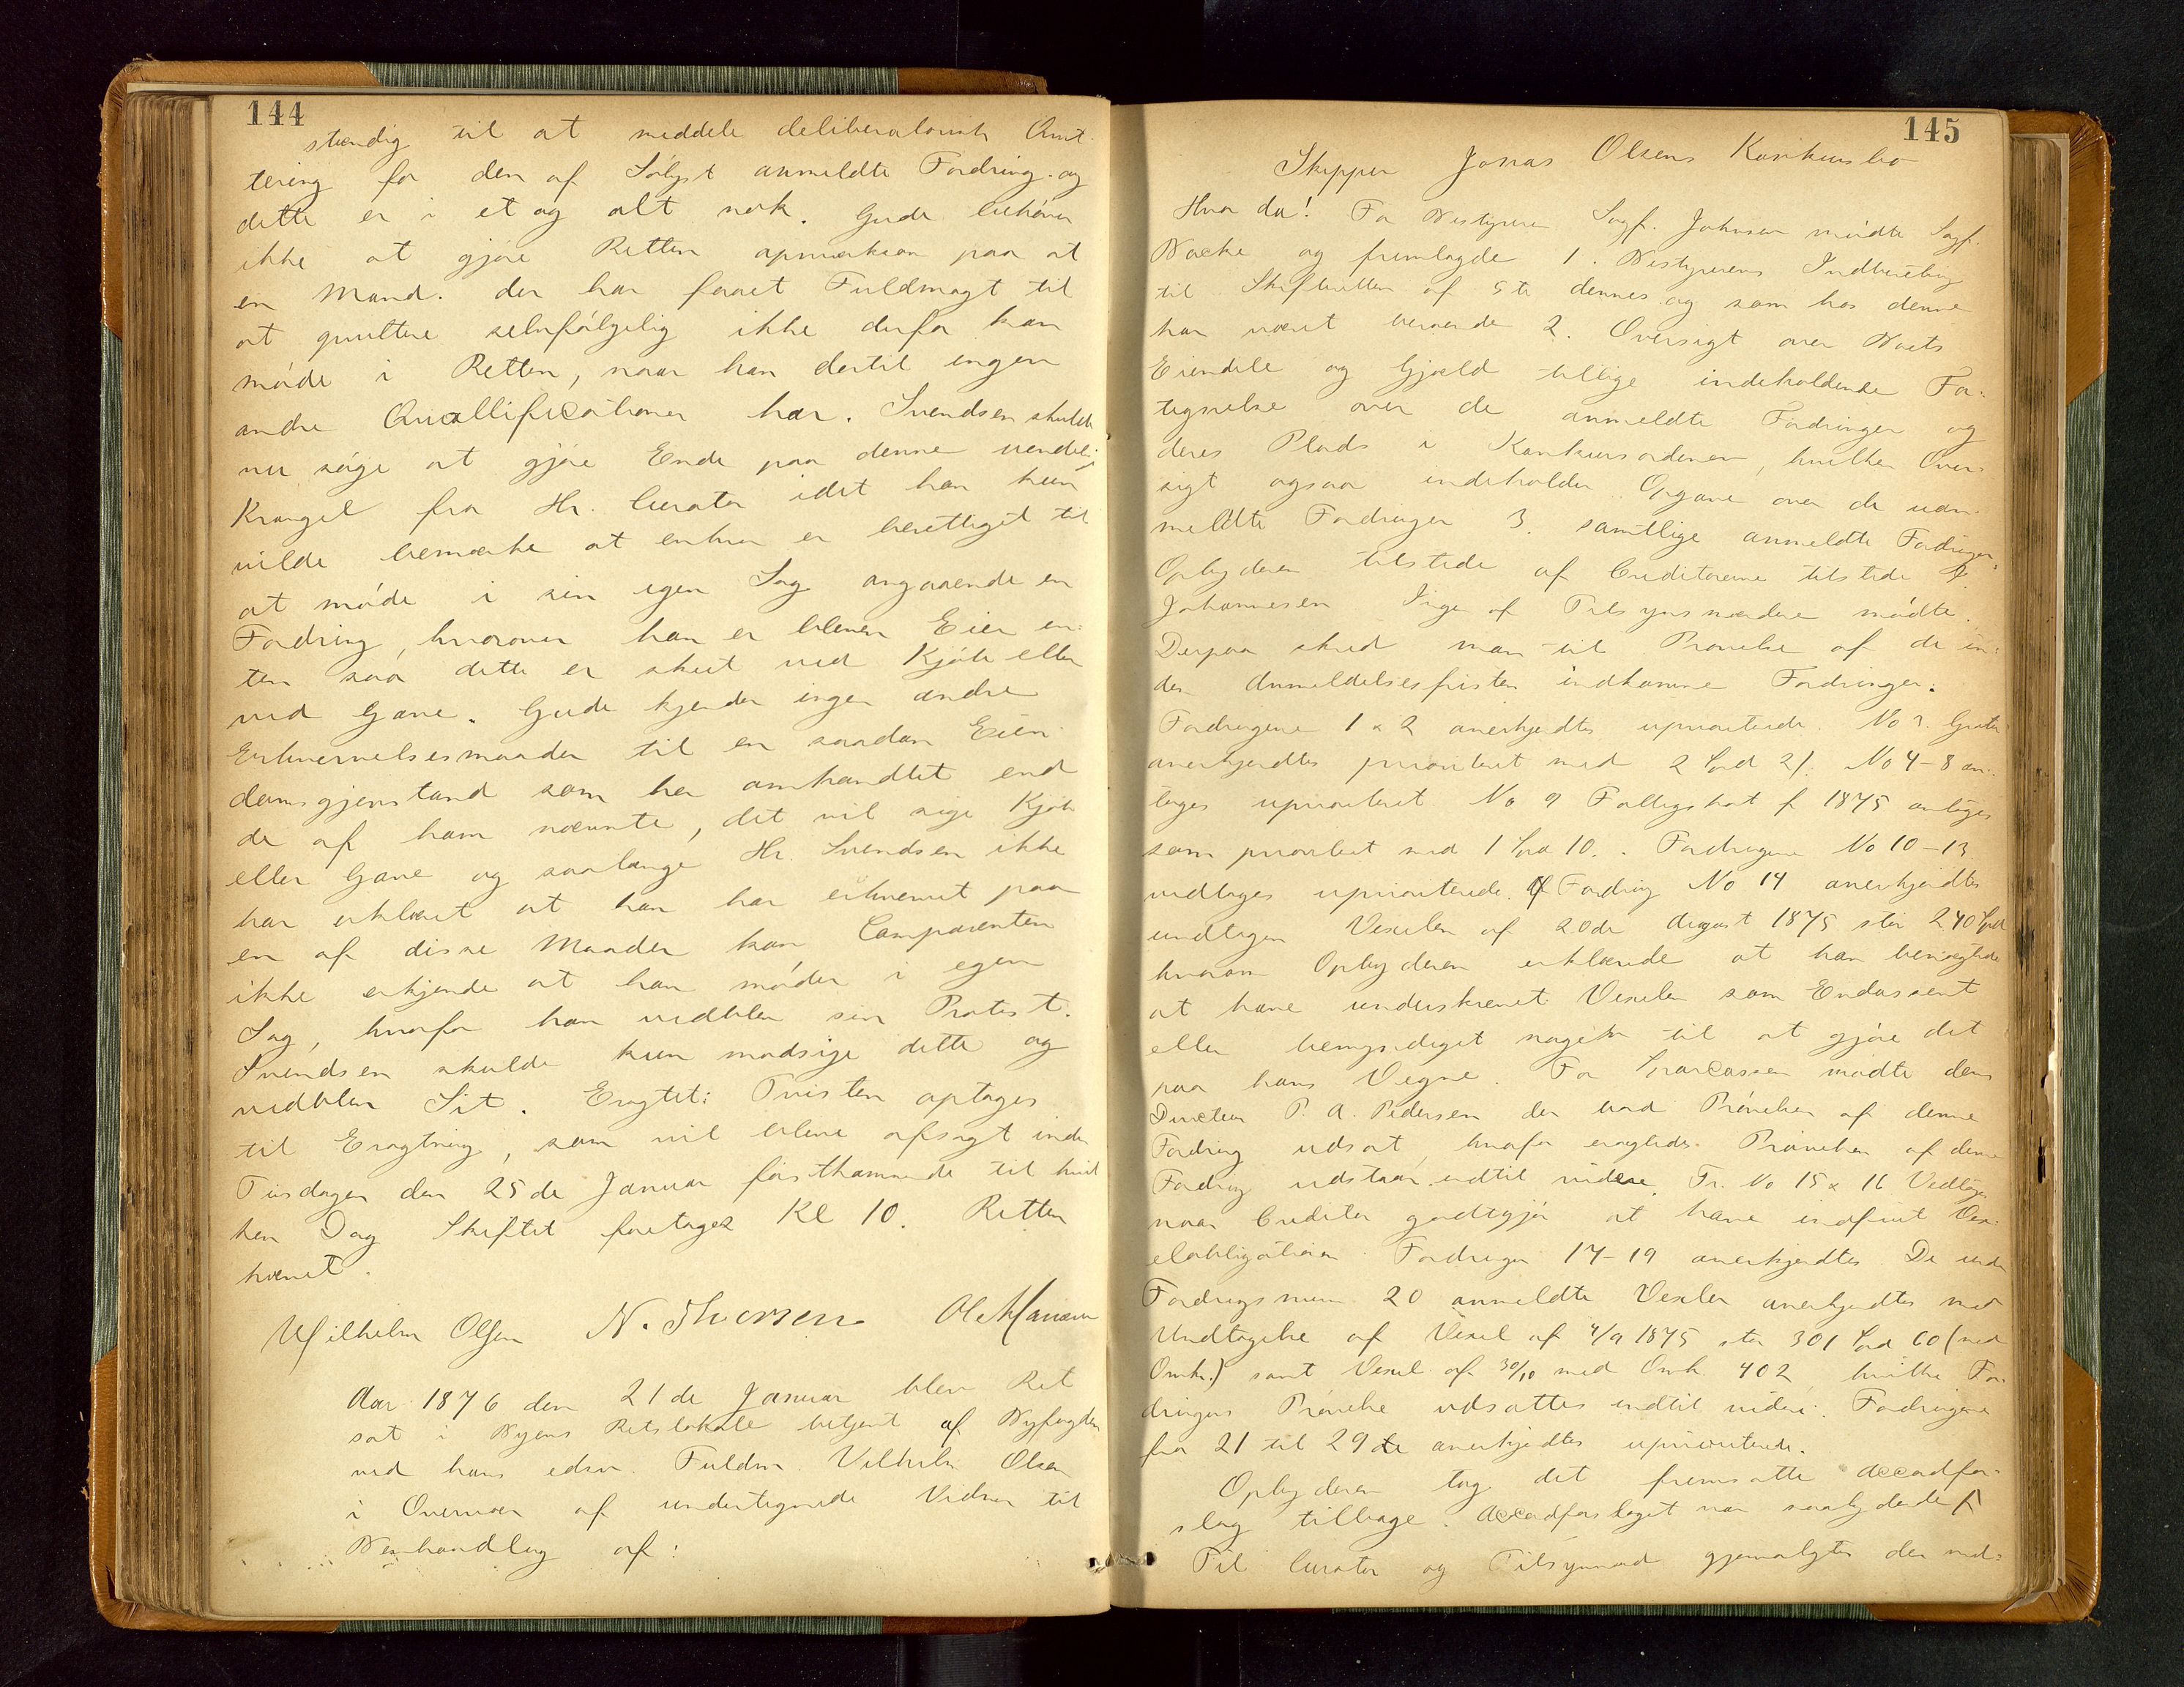 144
stændig til at meddele deliberatorisk Qvit-
tering for den af Sølyst anmeldte Fordring og
dette er i et og alt nok. Gude behøver
ikke at gjøre Retten opmærksom paa at
en Mand. der har faaet Fuldmagt til
at qvittere selvfølgelig ikke derfor kan
møde i Retten, naar han dertil ingen
andre Qvallificationer har. Svendsen skulde
nu søge at gjøre Ende paa denne uendelig
Krangel fra Hr. Curator idet han kun
vilde bemærke at enhver er berettiget til
at møde i sin egen Sag angaaende en
Fordring, hvorover han er bleven Eier en-
ten saa dette er skeet ved Kjøb eller
ved Gave. Gude kjender ingen andre
Erhvervelsesmaader til en saadan Eien-
domsgjenstand som her omhandlet end
de af ham nævnte, det vil sige Kjøb
eller Gave og saalænge Hr. Svendsen ikke
har erklæret at han har erhvervet paa
en af disse Maader kan Comparenten
ikke erkjende at han møder i egen
Sag, hvorfor han vedblev sin Protest.
Svendsen skulde kun modsige dette og
vedblev Sit. Eragtet: Tvisten optages
til Eragtning, som vil blive afsagt inden
Tirsdagen den 25de Januar førstkommende til hvil
ken Dag Skiftet foretages Kl 10. Retten
hævet.
Wilhelm Olsen N. Thorsen Ole Hansen
Aar 1876 den 21de Januar blev Ret
sat i Byens Retslokale betjent af Byfogden
ved hans edsv. Fuldm. Vilhelm Olsen
i Overvær af undertegnede Vidner til
Behandling af:
145
Skipper Jonas Olsens Konkursbo
Hvor da! For Bestyrer Sagf. Johnsen mødte Sagf.
Backe og fremlagde 1. Bestyrerens Indberetning
til Skifteretten af 5te dennes og som hos denne
har været beroende 2. Oversigt over Boets
Eiendele og Gjæld tillige indeholdende For-
tegnelse over de anmeldte Fordringer og
deres Plads i Konkursordenen, hvilken Over-
sigt ogsaa indeholder Opgave over de uan-
meldte Fordringer 3. samtlige anmeldte Fordringer
Opbyderen tilstede af Creditorerne tilstede
Johannesen Ingen af Tilsynsmændene mødte.
Derpaa skred man til Prøvelse af de in-
den Anmeldelsesfristen indkomne Fordringer.
Fordringerne 1 & 2 anerkjendtes uprioriterede. No 3.
anerkjendtes prioriteret med 2 Spd 21. No 4-8 an-
toges uprioriteret No 9 Fattigskat f 1875 antoges
som prioriteret med 1 Spd 10. Fordringerne No 10-13
vedtoges uprioriterede. Af Fordring No 14 anerkjendtes
undtagen Vexelen af 20de August 1875 stor 240 Spd
hvorom Opbyderen erklærede at han benægtede
at have underskrevet Vexelen som Endossent
eller bemyndiget nogen til at gjøre det
paa hans Vegne. For Sparecassen mødte dens
Directeur P. A. Pedersen der bad Prøvelsen af denne
Fordring udsat, hvorfor eragtedes Prøvelsen af denne
Fordring udstaar indtil videre. Fr. No 15 & 16 Vedtoges
naar Creditor godtgjør at have indfriet Vex-
elobligationen. Fordringer 17-19 anerkjendtes. De under
Fordringsnum. 20 anmeldte Vexler anerkjendtes med
Undtagelse af Vexel af 4/9 1875 stor 301 Spd 60 (med
Omk.) samt Vexel af 30/10 med Omk. 402, hvilke For-
dringers Prøvelse udsattes indtil videre. Fordringerne
fra 21 til 29de anerkjendtes uprioriterede.
Opbyderen tog det fremsatte Accordfor-
slag tilbage. Accordforslaget var saalydende
Til Curator og Tilsynsmænd gjenvalgtes der ved-